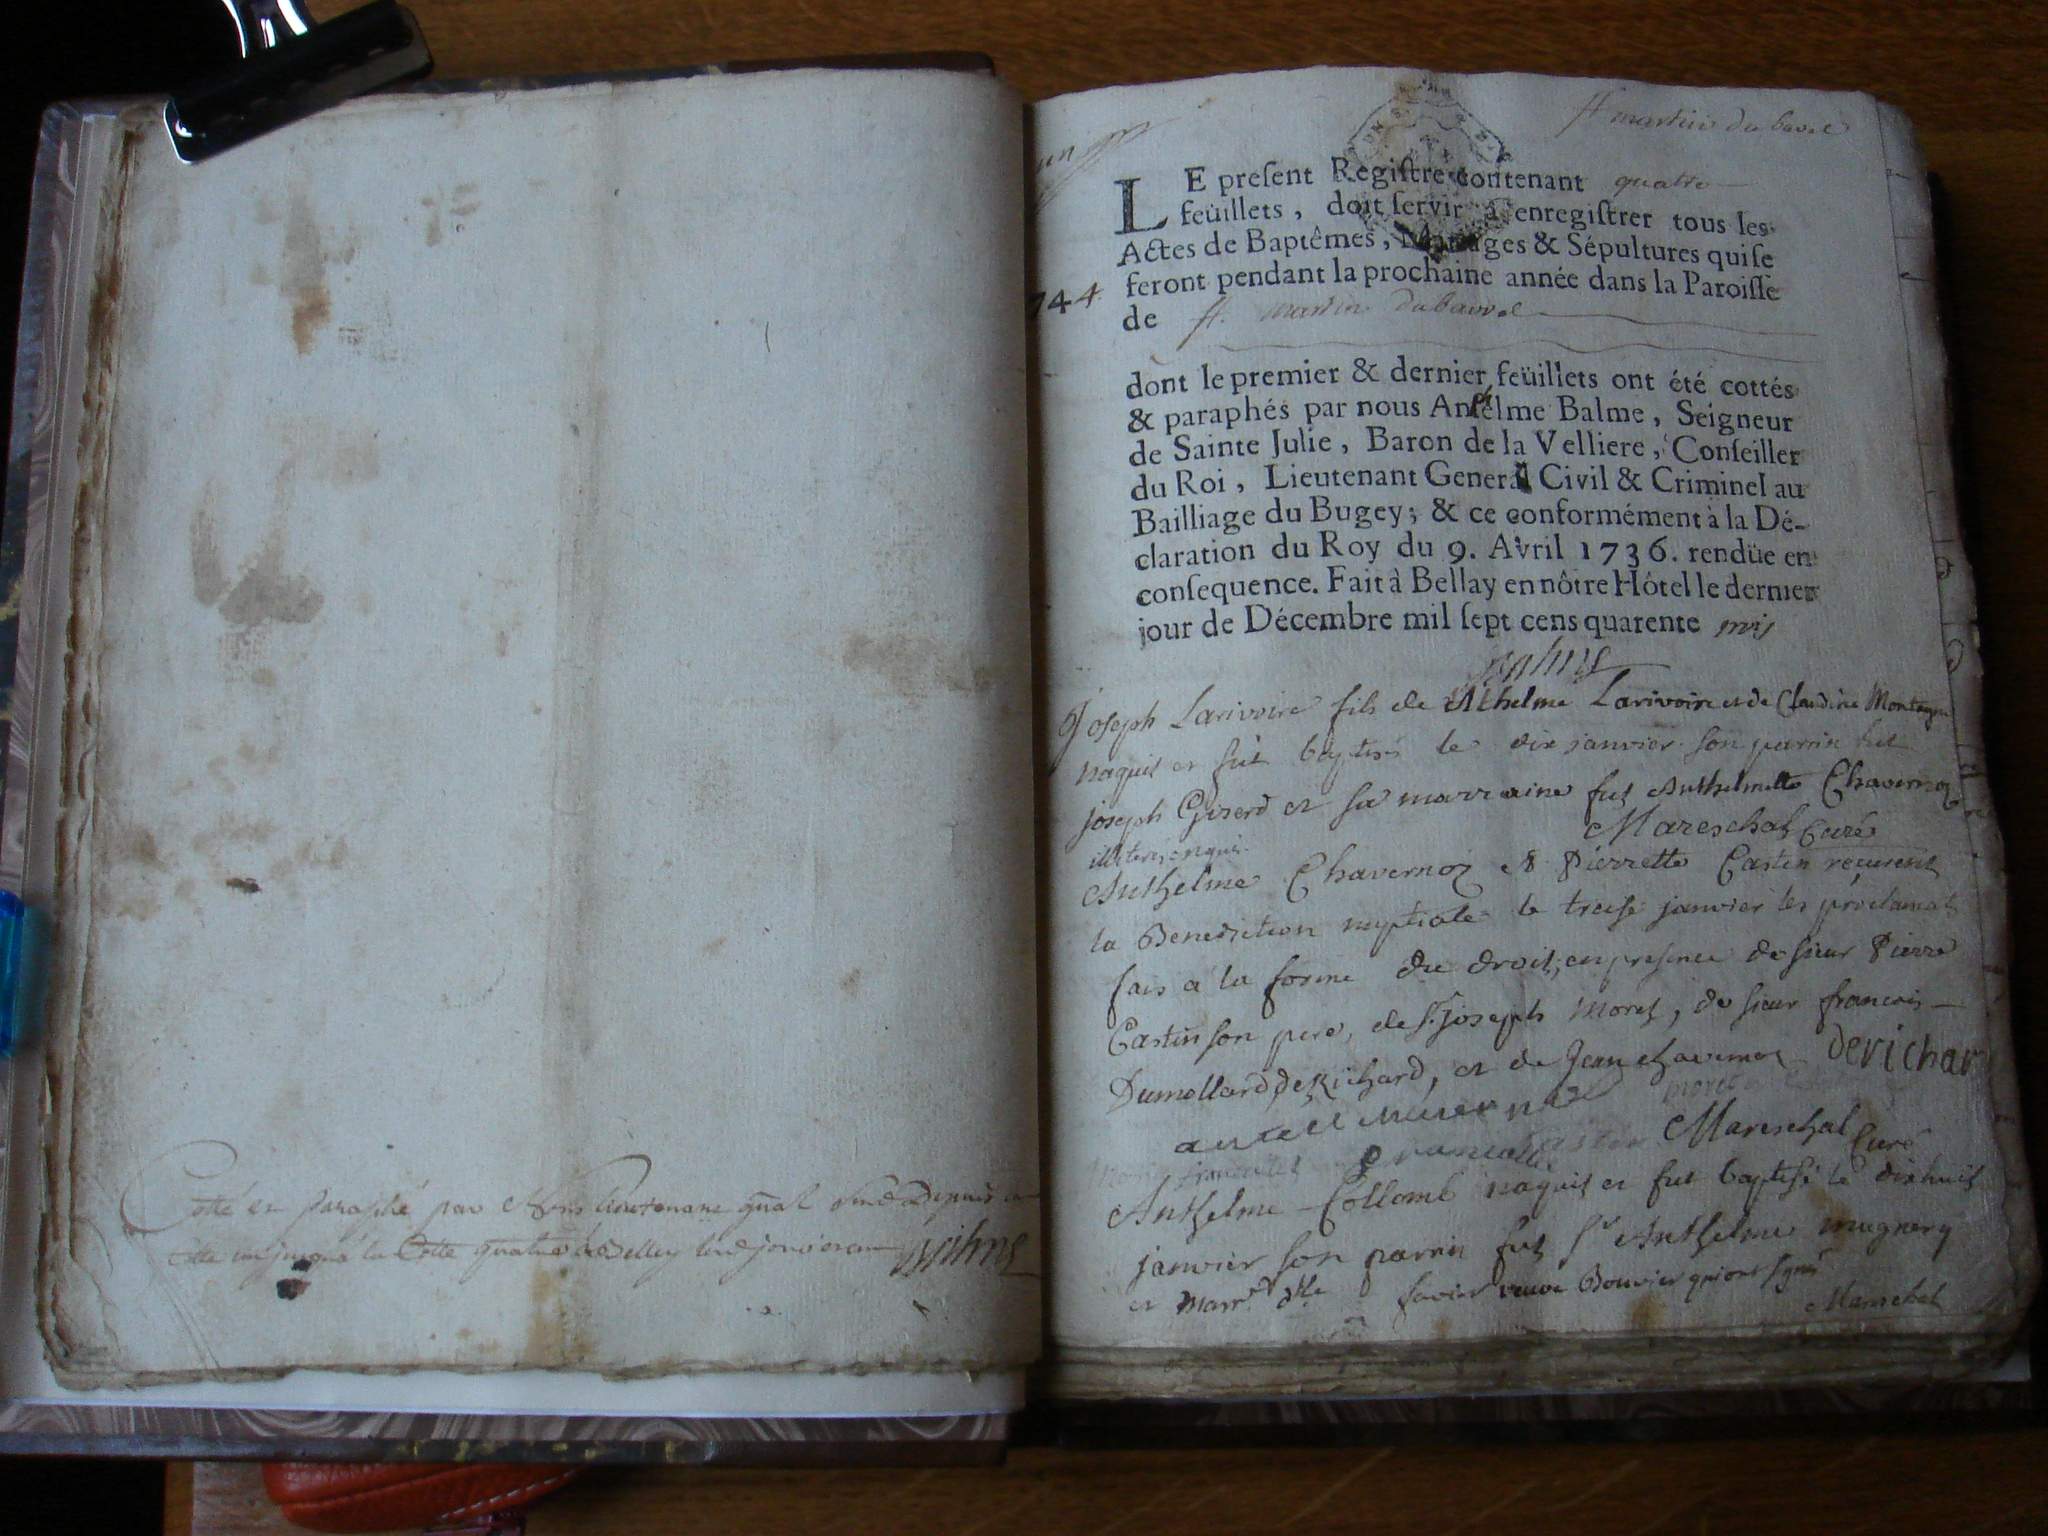 Cotté et paraphé par Nous Lieutenant gnal
cotte un jusqu'à la Cotte quatre à Belley
un
st martin du bavel
LE preſent Regiſtre contenant quatre
feüillets, doit ſervir à enregiſtrer tous les
Actes de Baptêmes, Mariages & Sépultures qui ſe
feront pendant la prochaine année dans la Paroiſſe
744
de st. martin du bavel
dont le premier & dernier feüillets ont été cottés
& paraphés par nous Anſelme Balme, Seigneur
de Sainte Julie, Baron de la Velliere, Conſeiller
du Roi, Lieutenant General Civil & Criminel au
Bailliage du Bugey; & ce conformément à la Dé-
claration du Roy du 9. Avril 1736. rendüe en
conſequence. Fait à Bellay en nôtre Hôtel le dernier
jour de Décembre mil ſept cens quarente trois
Joseph Larivoire fils de Athelme Larivoire et de Claudine Montagne
naquit et fut baptisé le dix janvier son parrin fut
joseph Giserd et sa marraine fut Anthelmette Chavernoz
illiteres enquis. Mareschal Curé
Anthelme Chavernoz & Pierrette Castin reçurent
la Benediction nuptiale le treise janvier les proclamat
fais a la forme du droit, en presence de sieur Pierre
Castin son pere, de sr. joseph Moret, de sieur francois
Dumollard de Richard, et de Jean chavernoz derichar
Mareschal Curé
Anthelme Collomb naquit et fut baptisé le dixhuit
janvier son parrin fut sr Anthelme mugnery
et marr. dlle favier veuve Bouvier qui ont signé
Mareschal